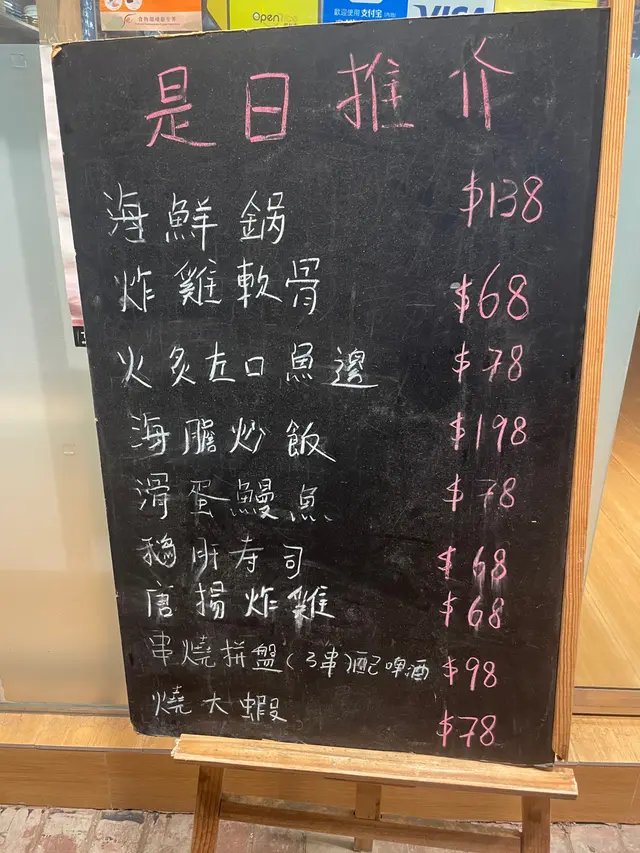 OpenRice
歡迎使用支付宝
VISA
是日推介
海鮮鍋 $138
炸雞軟骨 $68
火炙左口魚邊 $78
海膽炒飯 $198
滑蛋鰻魚 $78
鵝肝寿司 $68
唐揚炸雞 $68
串燒拼盤(3串)配啤酒 $98
燒大蝦 $78